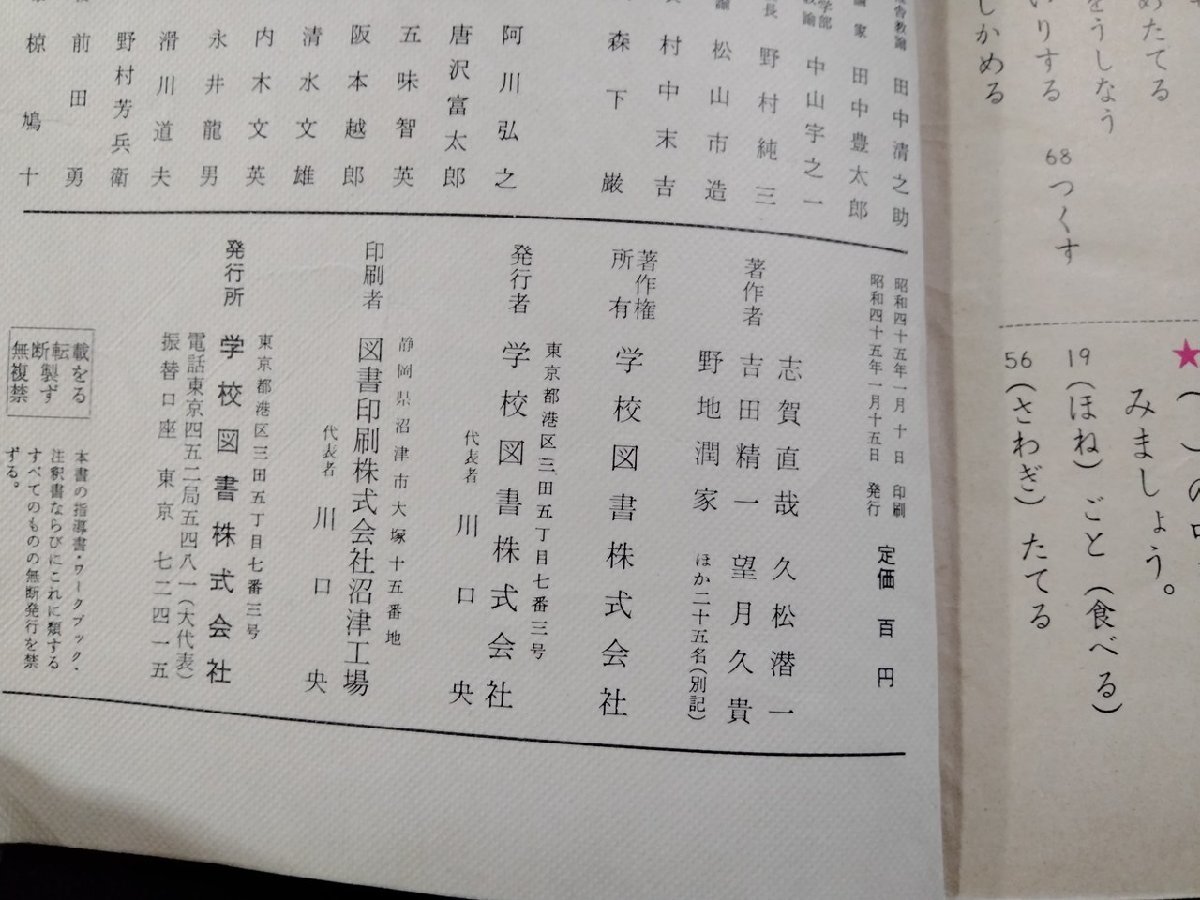 めたてる
をうしなう
いりする
しかめる
68 つくす
★
( )の
みましょう。
19 (ほね)ごと(食べる)
56 (さわぎ)たてる
田中清之助
家 田中豊太郎
中山宇之一
長 野村純三
松山市造
村中末吉
森下巌
阿川弘之
唐沢富太郎
五味智英
阪本越郎
清水文雄
内木文英
永井龍男
滑川道夫
野村芳兵衛
前田勇
椋鳩十
昭和四十五年一月 十日 印刷
昭和四十五年一月十五日 発行
定価 百円
著作者
志賀直哉 久松潜一
吉田精一 望月久貴
野地潤家 ほか二十五名(別記)
著作権所有 学校図書株式会社
発行者
東京都港区三田五丁目七番三号
学校図書株式会社
代表者 川口央
印刷者
静岡県沼津市大塚十五番地
図書印刷株式会社沼津工場
代表者 川口央
発行所
東京都港区三田五丁目七番三号
学校図書株式会社
電話東京四五二局五四八一(大代表)
振替口座 東京 七二四一五
載をる
転製ず
断複禁
無
本書の指導書・ワークブック・
注釈書ならびにこれに類する
すべてのものの無断発行を禁
ずる。